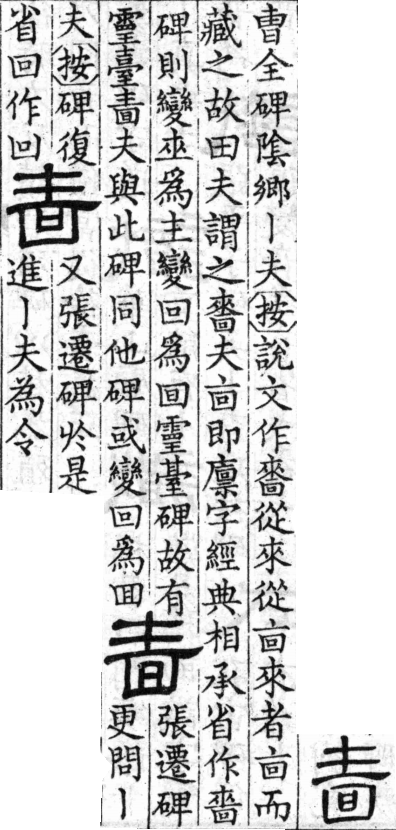 嗇
曹全碑陰鄉丨夫按說文作嗇從來從㐭來者㐭而
藏之故田夫謂之嗇夫㐭即廩字經典相承省作嗇
碑則變巫爲主變回爲囬靈臺碑故有
靈臺嗇夫與此碑同他碑或變回爲囬
嗇
張遷碑
更問丨
夫按碑復
省回作囬
嗇
又張遷碑於是
進丨夫為令